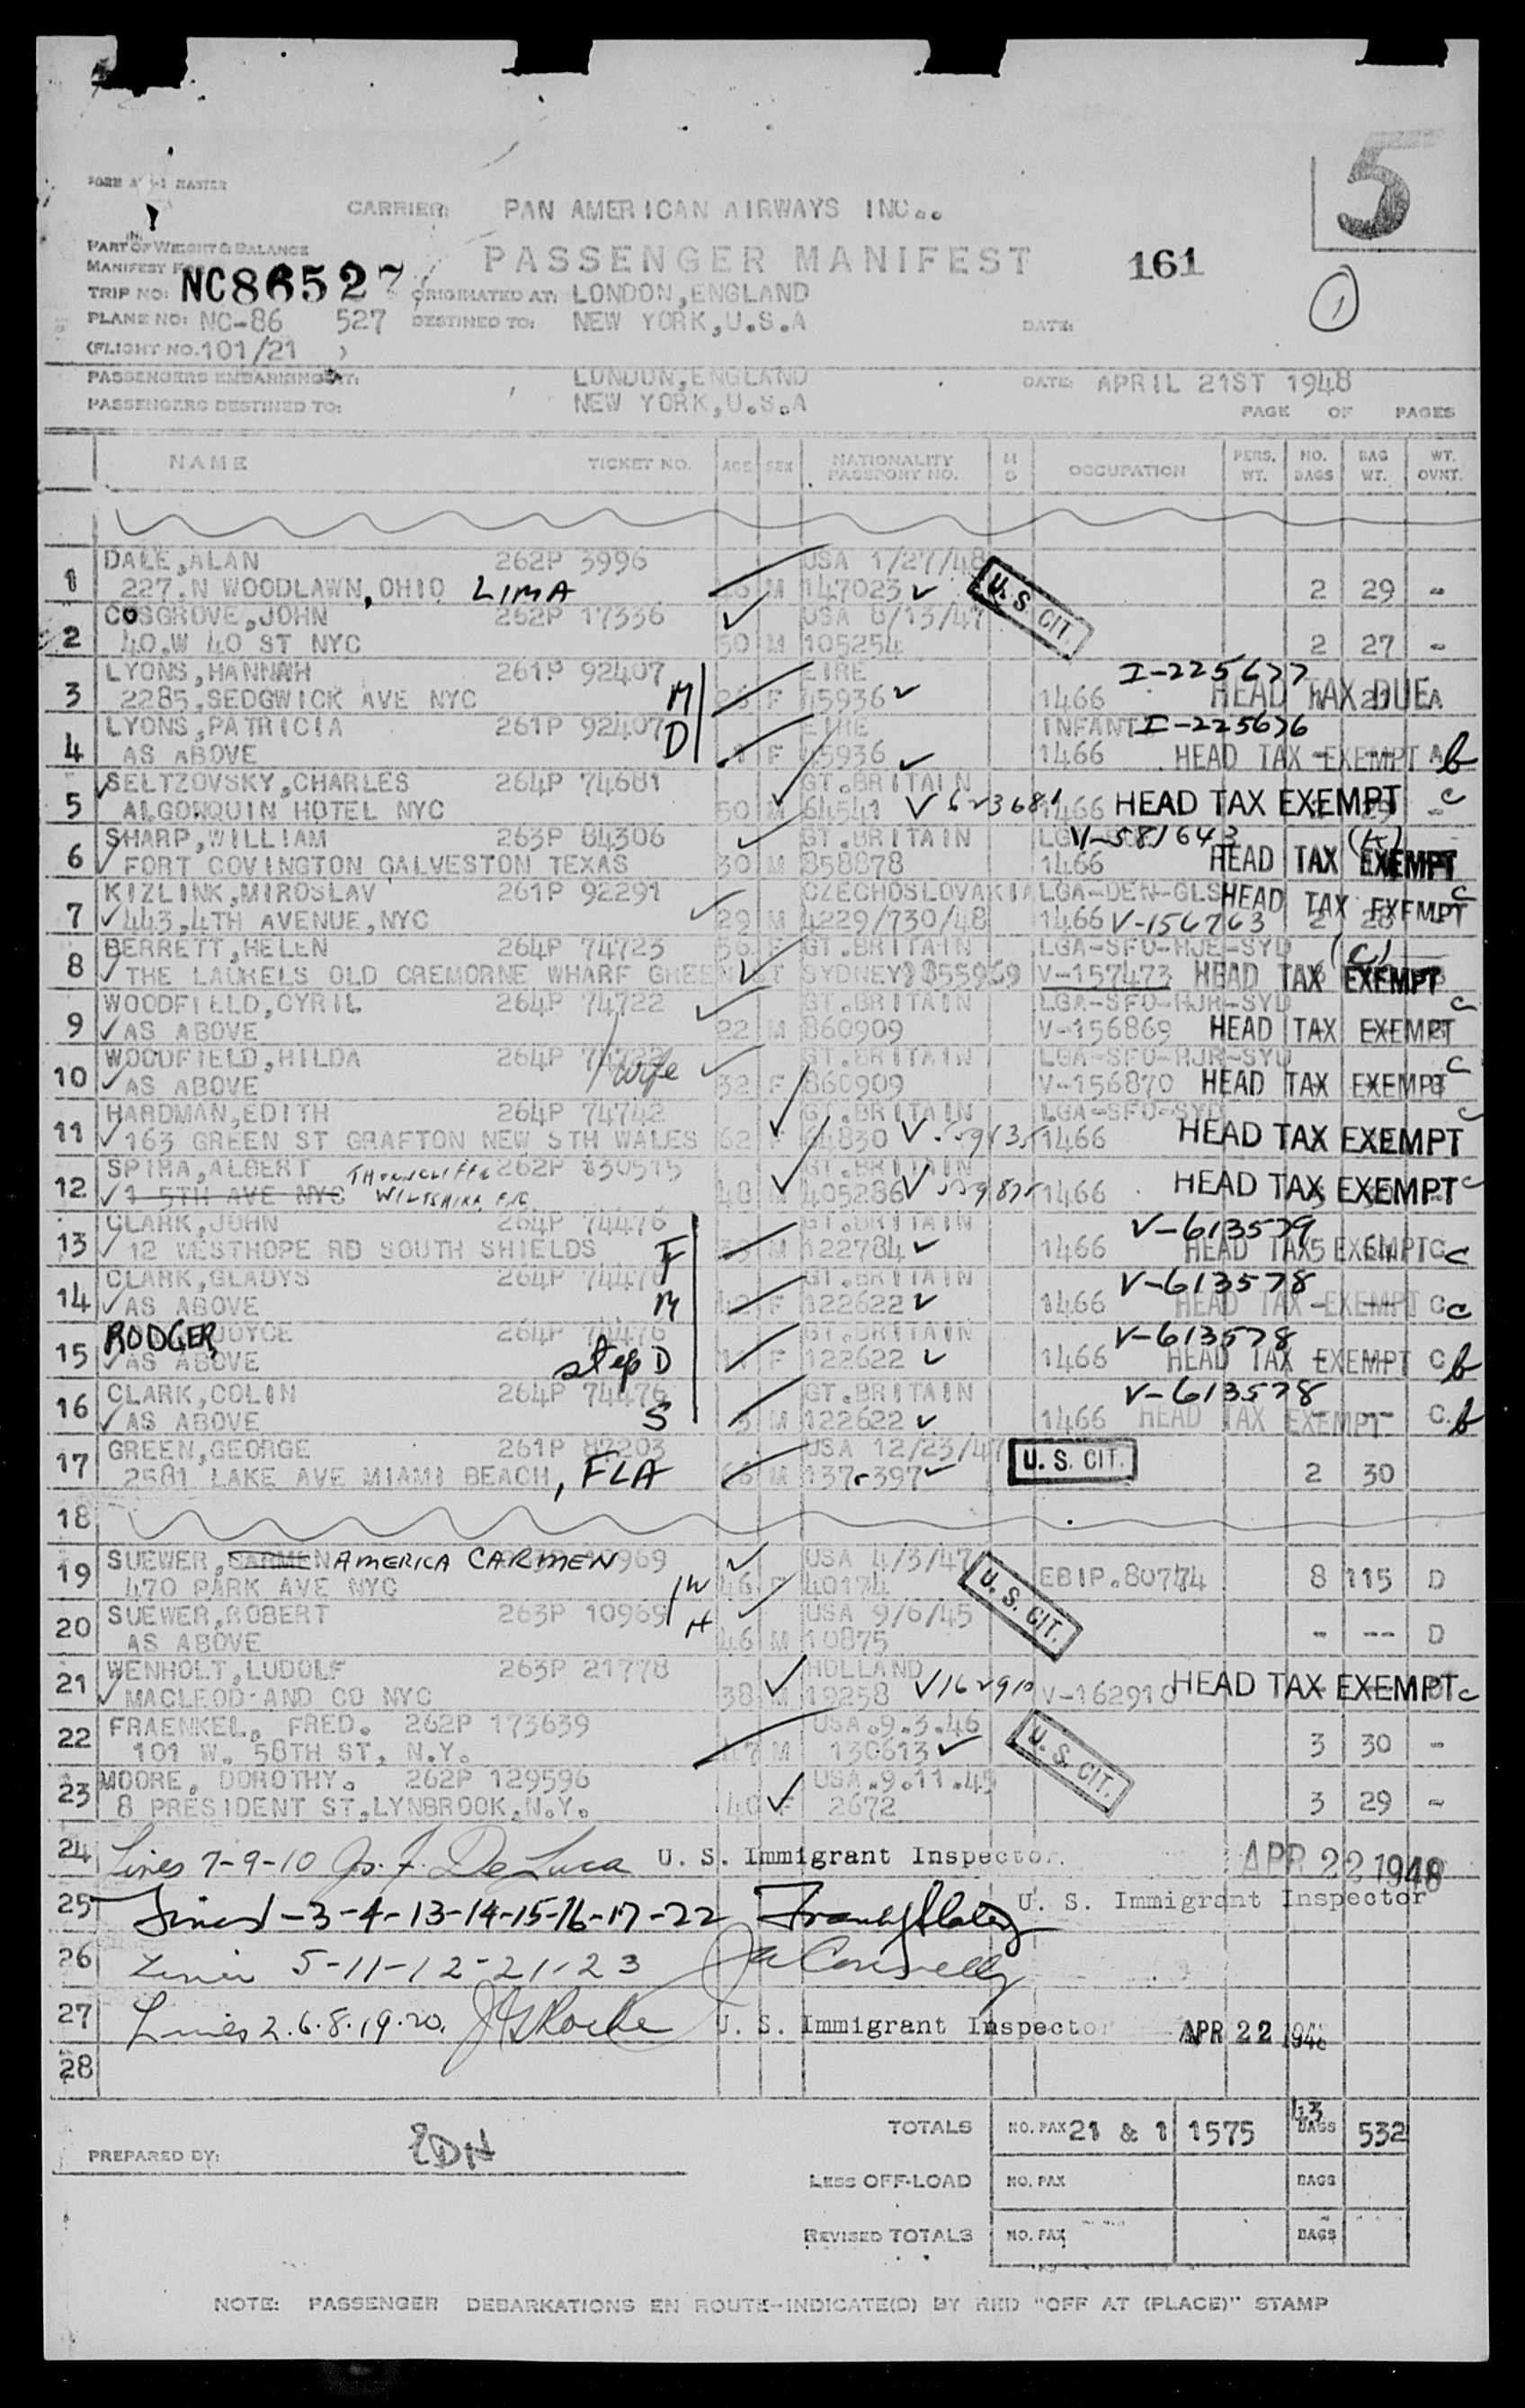 5
CARRIER: PAN AMERICAN AIRWAYS INC..
PART OF WEIGHT & BALANCE
PASSENGER MANIFEST 161
MANIFEST
TRIP NO: NC86527 ORIGINATED AT: LONDON,ENGLAND
1
PLANE NO: NC-86 527 DESTINED TO: NEW YORK,U.S.A DATE:
(FLIGHT NO.101/21 )
PASSENGERS EMBARKING AT: LONDON,ENGLAND DATE: APRIL 21ST 1948
PASSENGERS DESTINED TO: NEW YORK,U.S.A
PAGE OF PAGES
NAME TICKET NO. AGE SEX NATIONALITY PASSPORT NO. M D OCCUPATION PERS. WT. NO. BAGS BAG WT. WT. OVNT.
DALE,ALAN 262P 3996 USA 1/27/48
1 227.N WOODLAWN,OHIO LIMA M 147023 U.S. CIT. 2 29 -
COSGROVE,JOHN 262P 17336 USA 8/13/47
2 40.W 40 ST NYC 50 M 105254 2 27 -
LYONS,HANNAH 261P 92407 EIRE I-225677
3 2285,SEDGWICK AVE NYC M F 15936 1466 HEAD TAX DUE A
LYONS,PATRICIA 261P 92407 EIRE INFANT I-225676
4 AS ABOVE D 1 F 15936 1466 HEAD TAX EXEMPT A b
SELTZOVSKY,CHARLES 264P 74681 GT.BRITAIN
5 ALGONQUIN HOTEL NYC 50 M 64541 V623681 1466 HEAD TAX EXEMPT c
SHARP,WILLIAM 263P 84306 GT.BRITAIN V-581643
6 FORT COVINGTON GALVESTON TEXAS 30 M 858878 1466 HEAD TAX EXEMPT
KIZLINK,MIROSLAV 261P 92291 CZECHOSLOVAKIA LGA-DEN-GLS
7 443,4TH AVENUE,NYC 29 M 4229/730/48 1466 V-156763 HEAD TAX EXEMPT c
BERRETT,HELEN 264P 74723 56 F GT.BRITAIN LGA-SFO-HJE-SYD (C)
8 THE LAURELS OLD CREMORNE WHARF GREEN ST SYDNEY 855969 V-157473 HEAD TAX EXEMPT
WOODFIELD,CYRIL 264P 74722 GT.BRITAIN LGA-SFO-HJR-SYD
9 AS ABOVE 22 M 860909 V-156869 HEAD TAX EXEMPT c
WOODFIELD,HILDA 264P 74722 wife GT.BRITAIN LGA-SFO-HJR-SYD
10 AS ABOVE 32 F 860909 V-156870 HEAD TAX EXEMPT c
HARDMAN,EDITH 264P 74742 GT.BRITAIN LGA-SFO-SYD
11 163 GREEN ST GRAFTON NEW STH WALES 62 F 64830 1466 HEAD TAX EXEMPT c
SPIRA,ALBERT 262P 130515 GT.BRITAIN
12 1 5TH AVE NYC 48 M 405286 1466 HEAD TAX EXEMPT c
CLARK,JOHN 264P 74476 GT.BRITAIN V-613579
13 12 WESTHOPE RD SOUTH SHIELDS F M 122784 1466 HEAD TAX EXEMPT C c
CLARK,GLADYS 264P 74476 GT.BRITAIN V-613578
14 AS ABOVE M 42 F 122622 1466 HEAD TAX EXEMPT C c
RODGER, JOYCE 264P 74476 GT.BRITAIN V-613578
15 AS ABOVE step D 11 F 122622 1466 HEAD TAX EXEMPT C b
CLARK,COLIN 264P 74476 GT.BRITAIN V-613578
16 AS ABOVE S M 122622 1466 HEAD TAX EXEMPT C. b
GREEN,GEORGE 261P 82203 USA 12/23/47
17 2581 LAKE AVE MIAMI BEACH, FLA M 137-397 U.S. CIT. 2 30
18
SUEWER, CARMEN AMERICA CARMEN USA 4/3/47
19 470 PARK AVE NYC W 46 F 40174 U.S. CIT. EBIP.80774 8 115 D
SUEWER,ROBERT 263P 10969 H USA 9/6/45
20 AS ABOVE 46 M 10875 - -- D
WENHOLT,LUDOLF 263P 21778 HOLLAND
21 MACLEOD AND CO NYC 38 M 19258 V162910 V-162910 HEAD TAX EXEMPT c
FRAENKEL, FRED. 262P 173639 USA.9.3.46
22 101 W. 58TH ST, N.Y. 47 M 130613 U.S. CIT. 3 30 -
MOORE, DOROTHY. 262P 129596 USA.9.11.45
23 8 PRESIDENT ST,LYNBROOK,N.Y. 40 F 2672 3 29 -
24 Lines 7-9-10 Jos. F. De Luca U. S. Immigrant Inspector APR 22 1948
25 Lines 1-3-4-13-14-15-16-17-22 U. S. Immigrant Inspector
26 Lines 5-11-12-21-23 Connelly
27 Lines 2.6.8.19.20. U. S. Immigrant Inspector APR 22 1948
28
TOTALS NO. PAX 21 & 1 1575 43 BAGS 532
PREPARED BY:
LESS OFF-LOAD NO. PAX BAGS
REVISED TOTALS NO. PAX BAGS
NOTE: PASSENGER DEBARKATIONS EN ROUTE-INDICATE(D) BY RED "OFF AT (PLACE)" STAMP